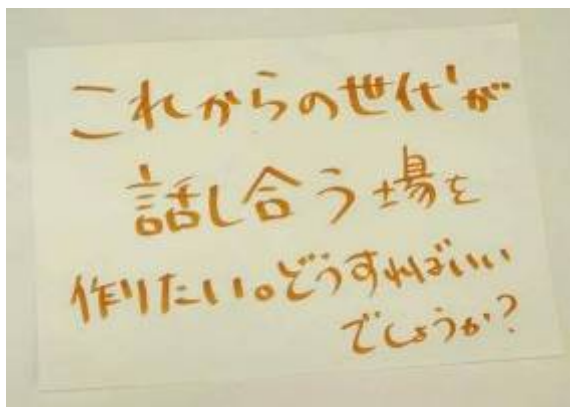 これからの世代が
話し合う場を
作りたい。どうすればいい
でしょうか?